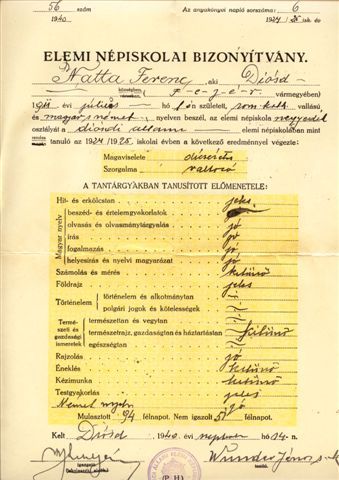 56 szám
1940
Az anyakönyvi napló sorszáma: 6
1924/25 isk. év
ELEMI NÉPISKOLAI BIZONYÍTVÁNY.
Natta Ferenc, aki Diósd
községben, városban, Fejér vármegyében)
évi július hó 1 én született, rom. kath. vallású
és magyar, német nyelven beszél, az elemi népiskola negyedik
osztályát a diósdi állami elemi népiskolában mint
tanuló az 1924/1925. iskolai évben a következő eredménnyel végezte:
Magaviselete dícséretes
Szorgalma változó
A TANTÁRGYAKBAN TANUSÍTOTT ELŐMENETELE:
Hit- és erkölcstan jeles
Magyar nyelv
beszéd- és értelemgyakorlatok
olvasás és olvasmánytárgyalás jó
írás jó
fogalmazás jó
helyesírás és nyelvi magyarázat jó
Számolás és mérés kitünő
Földrajz jeles
Történelem
történelem és alkotmánytan
polgári jogok és kötelességek
Természeti és gazdasági ismeretek
természettan és vegytan
természetrajz, gazdaságtan és háztartástan kitünő
egészségtan
Rajzolás jó
Éneklés kitünő
Kézimunka kitünő
Testgyakorlás jeles
Német nyelv jó
Mulasztott 94 félnapot. Nem igazolt 57 félnapot.
Kelt Diósd, 1940. évi september hó 14-n.
igazgató
(P. H.)
Wunder János s.k.